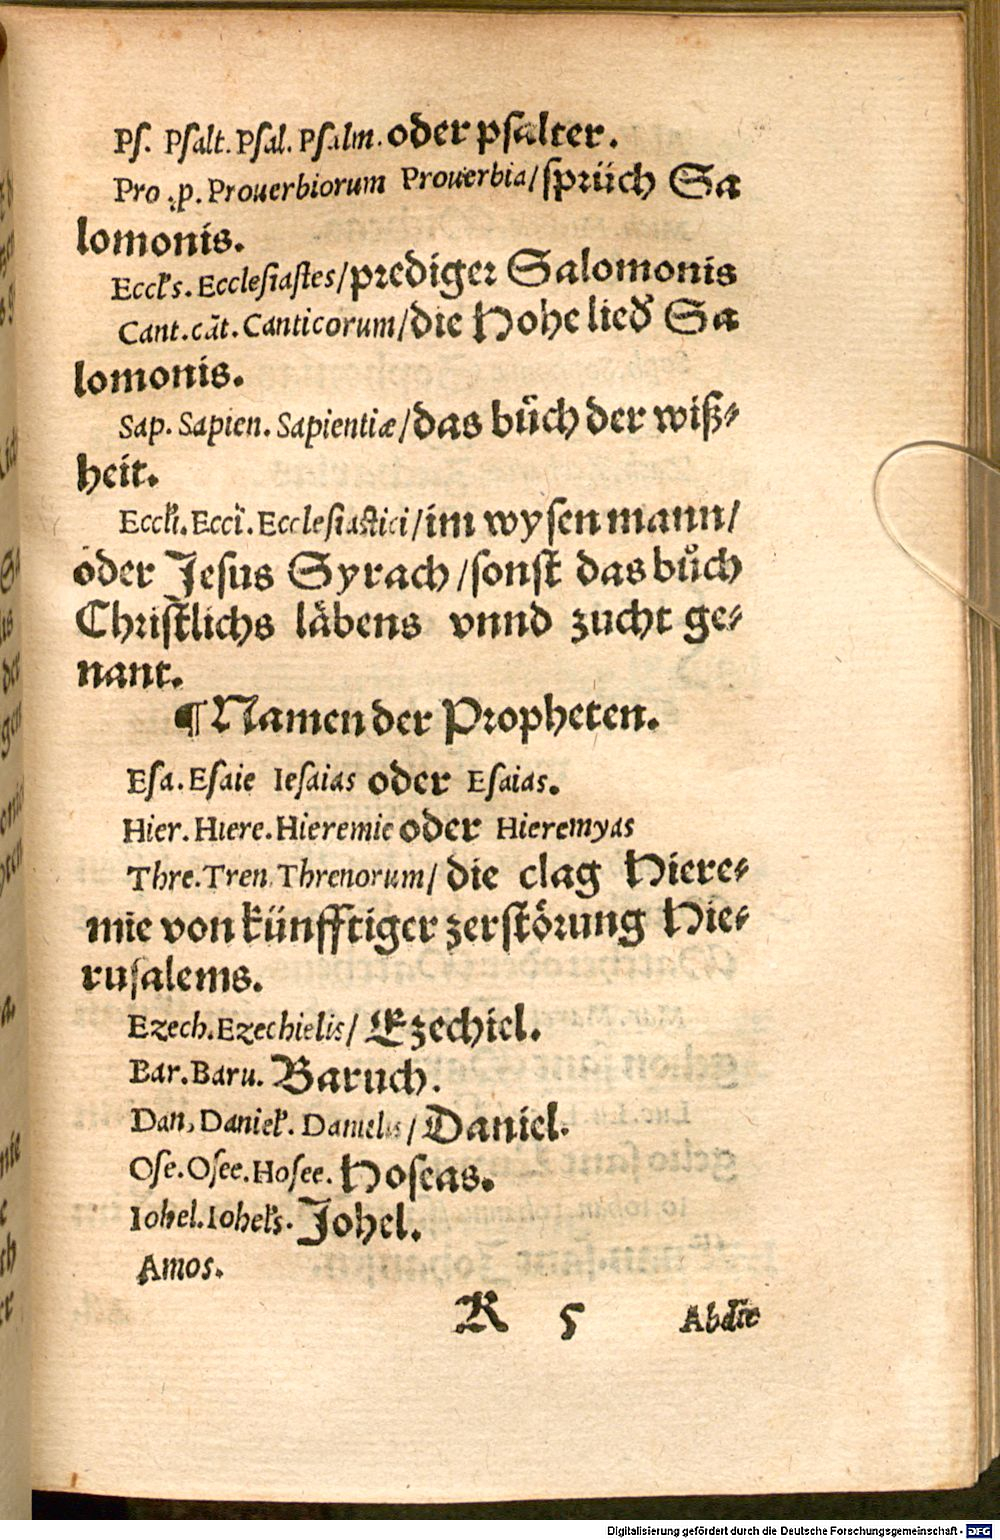 Pſ. Pſalt. Pſal. Pſalm. oder pſalter.
Pro .p. Prouerbiorum Prouerbia/ſprüch Sa
lomonis.
Eccls. Eccleſiaſtes/prediger Salomonis
Cant. cāt. Canticorum/die Hohe lied Sa
lomonis.
Sap. Sapien. Sapientiæ/das bůch der wiß⸗
heit.
Eccli. Ecci. Eccleſiaſtici/im wyſen mann/
oder Jeſus Syrach/ſonſt das bůch
Chriſtlichs läbens vnnd zucht ge⸗
nant.
¶ Namen der Propheten.
Eſa. Eſaie Ieſaias oder Eſaias.
Hier. Hiere. Hieremie oder Hieremyas
Thre. Tren. Threnorum/ die clag Hiere⸗
mie von künfftiger zerſtörung Hie⸗
ruſalems.
Ezech. Ezechielis/ Ezechiel.
Bar. Baru. Baruch.
Dan, Daniel. Danielis/ Daniel.
Oſe. Oſee. Hoſee. Hoſeas.
Iohel. Iohels. Johel.
Amos.
R 5 Abdie
Digitalisierung gefördert durch die Deutsche Forschungsgemeinschaft - DFG